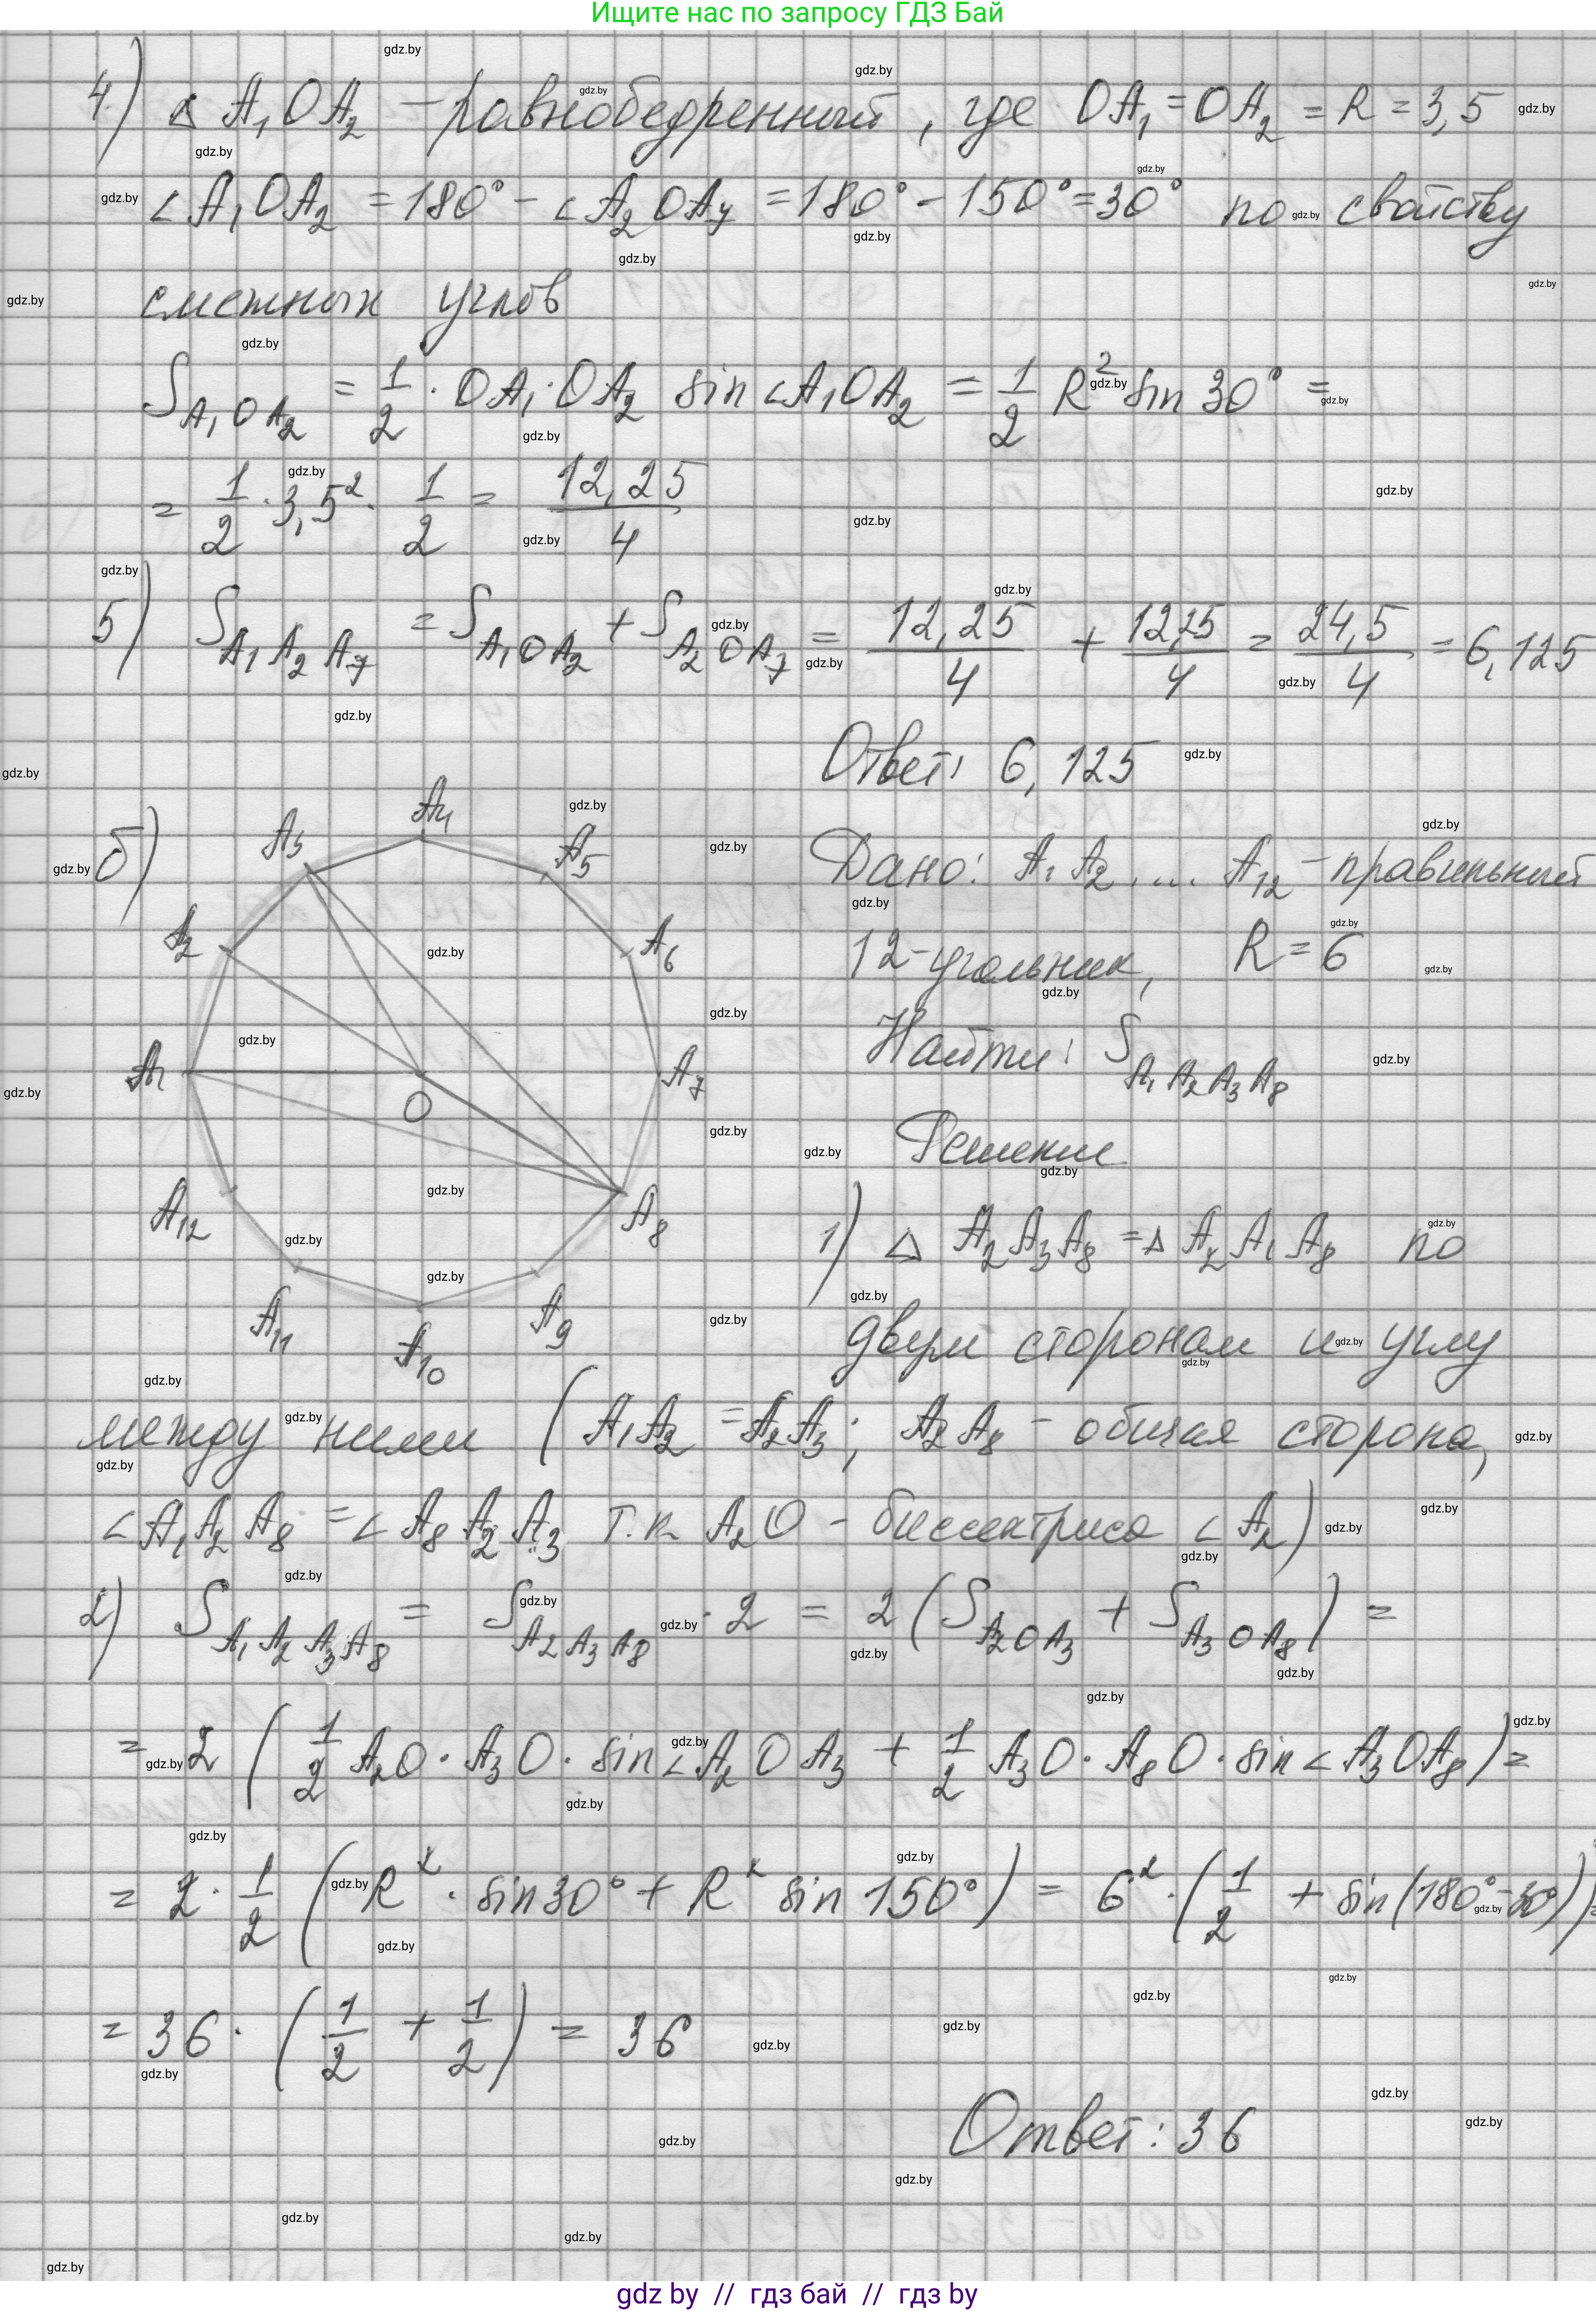 Ищите нас по запросу ГДЗ Бай
4) △ A₁OA₂ – равнобедренный, где OA₁ = OA₂ = R = 3,5
∠A₁OA₂ = 180° – ∠A₂OA₇ = 180° – 150° = 30° по свойству
смежных углов
S_A₁OA₂ = 1/2 · OA₁ · OA₂ sin ∠A₁OA₂ = 1/2 R² sin 30° =
= 1/2 · 3,5² · 1/2 = 12,25/4
5) S_A₁A₂A₇ = S_A₁OA₂ + S_A₂OA₇ = 12,25/4 + 12,25/4 = 24,5/4 = 6,125
Ответ: 6,125
б)
A₁ A₂ A₃ A₄ A₅ A₆ A₇ A₈ A₉ A₁₀ A₁₁ A₁₂ O
Дано: A₁A₂....A₁₂ – правильный
12-угольник, R = 6
Найти: S_A₁A₂A₃A₈
Решение
1) △ A₂A₃A₈ = △ A₂A₁A₈ по
двум сторонам и углу
между ними (A₁A₂ = A₂A₃; A₂A₈ – общая сторона,
∠A₁A₂A₈ = ∠A₈A₂A₃ т.к A₂O – биссектриса ∠A₂)
2) S_A₁A₂A₃A₈ = S_A₂A₃A₈ · 2 = 2(S_A₂OA₃ + S_A₃OA₈) =
= 2 (1/2 A₂O · A₃O · sin∠A₂OA₃ + 1/2 A₃O · A₈O · sin∠A₃OA₈) =
= 2 · 1/2 (R² · sin30° + R² sin 150°) = 6² · (1/2 + sin(180° – 30°)) =
= 36 · (1/2 + 1/2) = 36
Ответ: 36
gdz by // гдз бай // гдз by